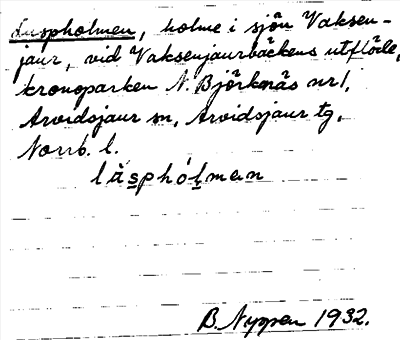 Luspholmen, holme i sjön Vaksen-
jaur, vid Vaksenjaurbäckens utflöde,
kronoparken N. Björknäs nr 1,
Arvidsjaur sn, Arvidsjaur tg,
Norrb. l.
låsphólmen
B. Nyppen 1932.